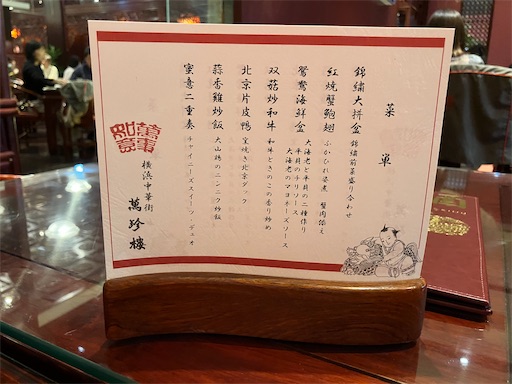 菜單
錦繡大拼盆 錦繍前菜盛り合わせ
紅燒蟹鮑翅 ふかひれ姿煮 蟹肉添え
鴛鴦海鮮盒 大海老と平貝の二種作り
平貝のチリソース
大海老のマヨネーズソース
双菇炒和牛 和牛ときのこの香り炒め
北京片皮鴨 窯焼き北京ダック
蒜香雞炒飯 大山鶏のニンニク炒飯
蜜意二重奏 チャイニーズスイーツ・デュオ
萬事如意
横浜中華街
萬珍樓